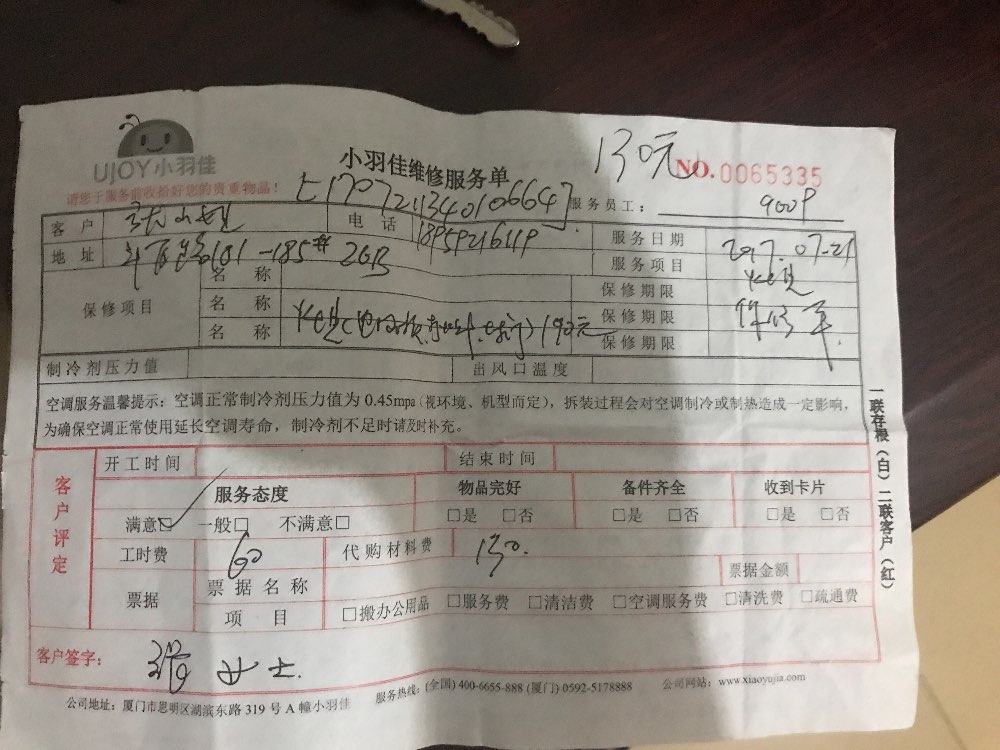 UJOY小羽佳
小羽佳维修服务单
130元
NO.0065335
请您于服务前收拾好您的贵重物品!
服务员工:
客户
电话
服务日期 2017.07.21
地址
服务项目
保修项目
名称
保修期限
名称
190元
保修期限
名称
保修期限
制冷剂压力值
出风口温度
空调服务温馨提示:空调正常制冷剂压力值为 0.45mpa(视环境、机型而定),拆装过程会对空调制冷或制热造成一定影响,
为确保空调正常使用延长空调寿命,制冷剂不足时请及时补充。
一联存根(白)二联客户(红)
客户评定
开工时间
结束时间
服务态度 物品完好 备件齐全 收到卡片
满意☑ 一般□ 不满意□ □是 □否 □是 □否 □是 □否
工时费 60 代购材料费 130.
票据
票据名称
票据金额
项目 □搬办公用品 □服务费 □清洁费 □空调服务费 □清洗费 □疏通费
客户签字: 女士.
公司地址:厦门市思明区湖滨东路 319 号 A 幢小羽佳 服务热线:(全国) 400-6655-888 (厦门) 0592-5178888 公司网站:www.xiaoyujia.com